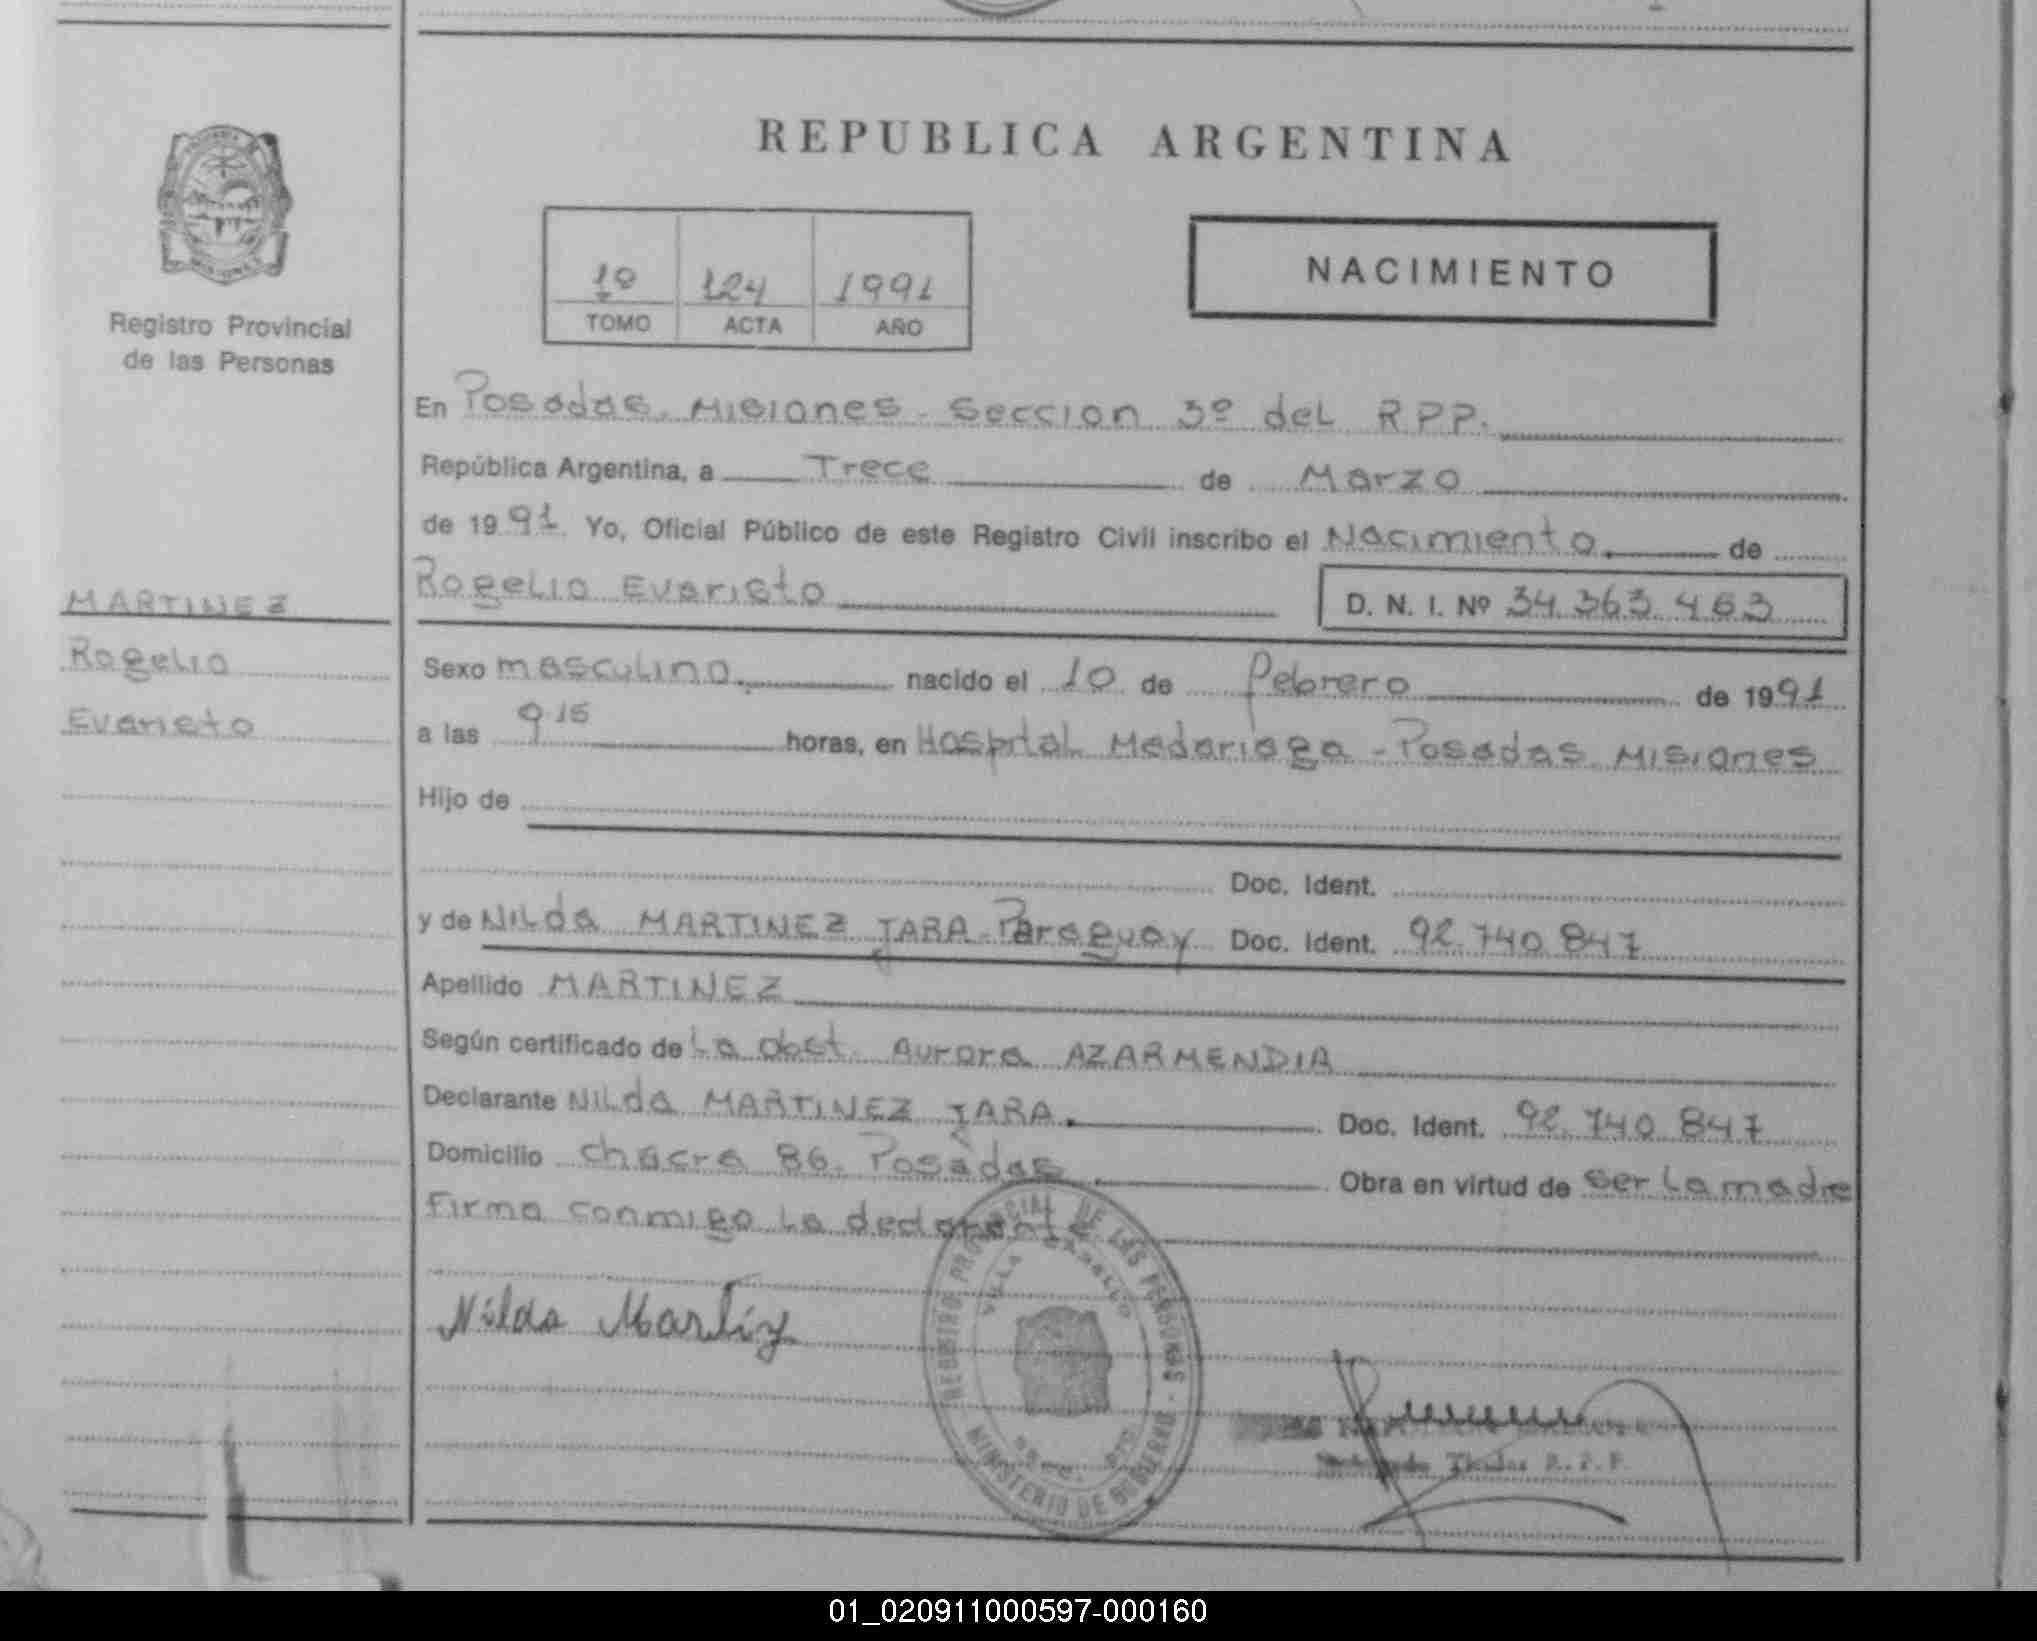 REPUBLICA ARGENTINA
Registro Provincial
de las Personas
1º 124 1991
TOMO ACTA AÑO
NACIMIENTO
En Posadas. Misiones. Seccion 3º del RPP.
República Argentina, a Trece de Marzo
de 1991. Yo, Oficial Público de este Registro Civil inscribo el Nacimiento. de
Rogelio Evaristo D. N. I. Nº 34.363.463
MARTINEZ
Rogelio
Evaristo
Sexo masculino. nacido el 10 de febrero de 1991
a las 9.15 horas, en Hospital Madariaga - Posadas Misiones
Hijo de
Doc. Ident.
y de Nilda MARTINEZ JARA - Paraguay Doc. Ident. 92.740.847
Apellido MARTINEZ
Según certificado de La obst. Aurora AZARMENDIA
Declarante Nilda MARTINEZ JARA. Doc. Ident. 92.740.847
Domicilio chacra 86. Posadas Obra en virtud de ser la madre
Firma conmigo la declarante
Nilda Martinez
REGISTRO PROVINCIAL DE LAS PERSONAS - MINISTERIO DE GOBIERNO -
VILLA
R.P.P.
01_020911000597-000160